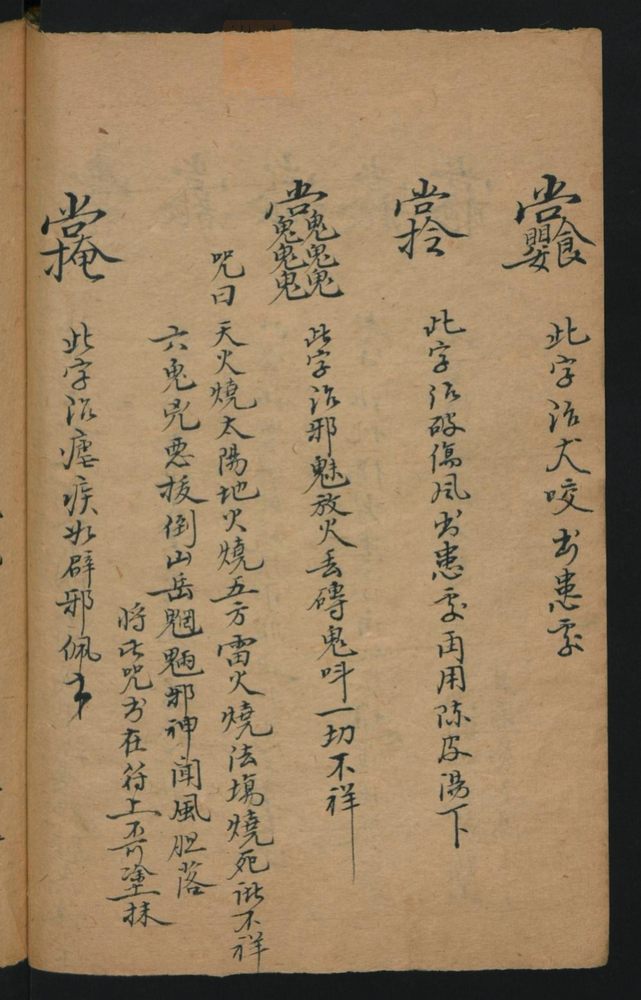 此字治犬咬书患处
此字治破伤风书患处再用陈皮湯下
此字治邪魅放火丢磚鬼呌一切不祥
咒曰 天火燒太陽地火燒五方雷火燒法塲燒死諸不祥
六鬼兇恶拔倒山岳魍魎邪神闻風胆落
將此咒书在符上不可塗抹
此字治瘧疾如辟邪佩之